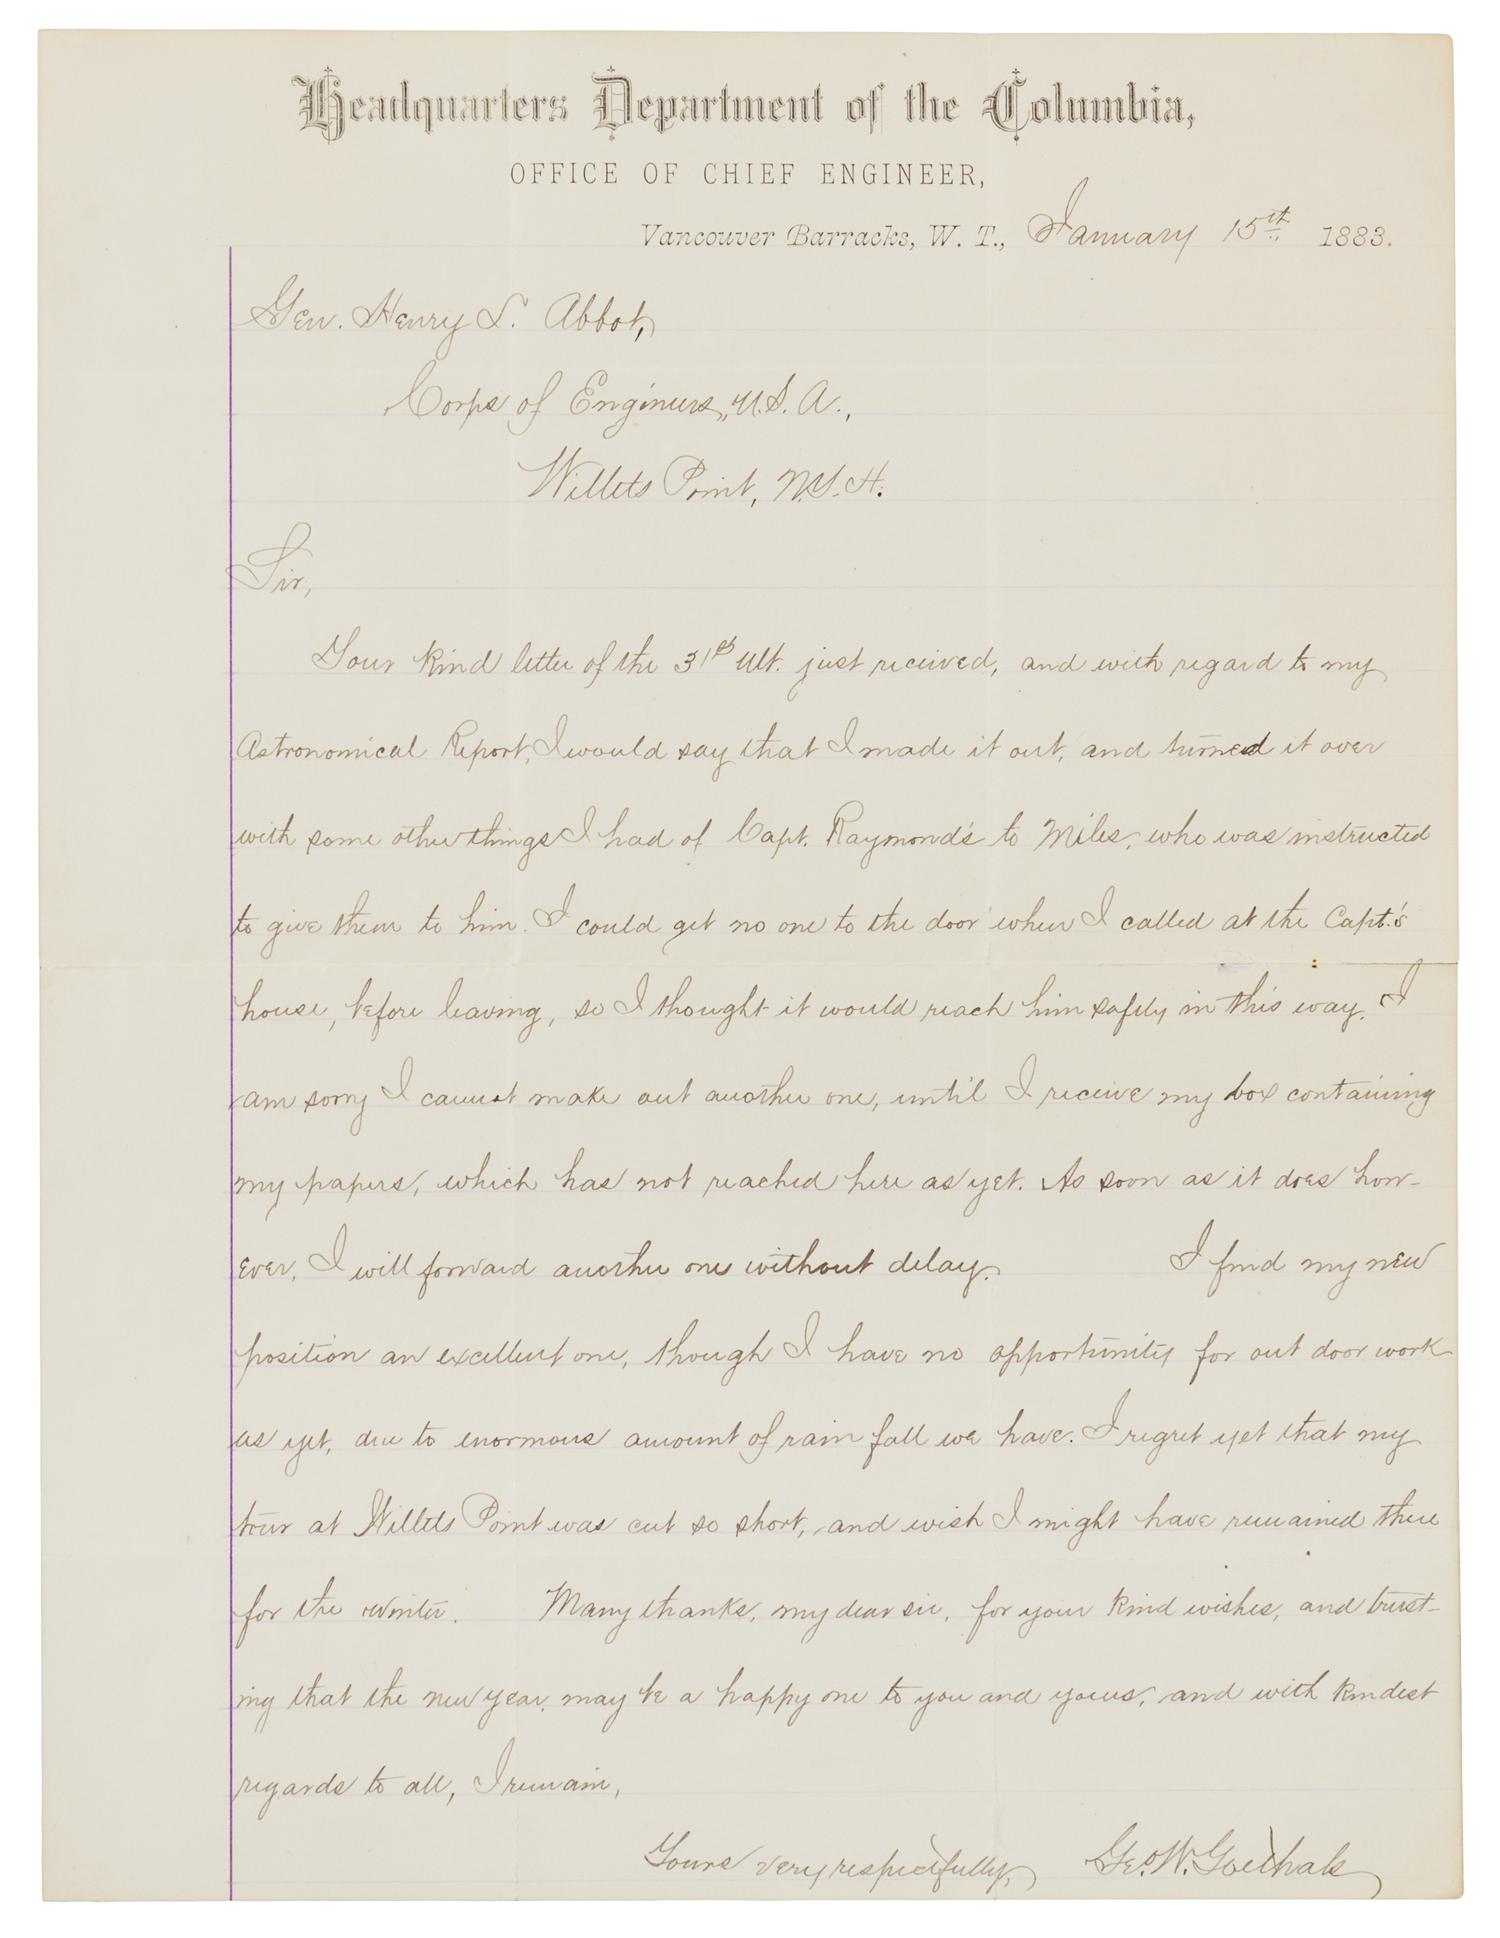 Headquarters Department of the Columbia,
OFFICE OF CHIEF ENGINEER,
Vancouver Barracks, W. T., January 15th 1883.
Gen. Henry L. Abbot,
Corps of Engineers, U.S.A.,
Willets Point, N.Y.H.
Sir,
Your kind letter of the 31st Ult. just received, and with regard to my
Astronomical Report, I would say that I made it out, and turned it over
with some other things I had of Capt. Raymond's to Miles, who was instructed
to give them to him. I could get no one to the door when I called at the Capt.'s
house, before leaving, so I thought it would reach him safely in this way. I
am sorry I cannot make out another one, until I receive my box containing
my papers, which has not reached here as yet. As soon as it does how-
ever, I will forward another one without delay. I find my new
position an excellent one, though I have no opportunity for out door work
as yet, due to enormous amount of rain fall we have. I regret yet that my
tour at Willets Point was cut so short, and wish I might have remained there
for the winter. Many thanks, my dear sir, for your kind wishes, and trust-
ing that the new year, may be a happy one to you and yours, and with kindest
regards to all, I remain,
Yours very respectfully, Geo. W. Goethals